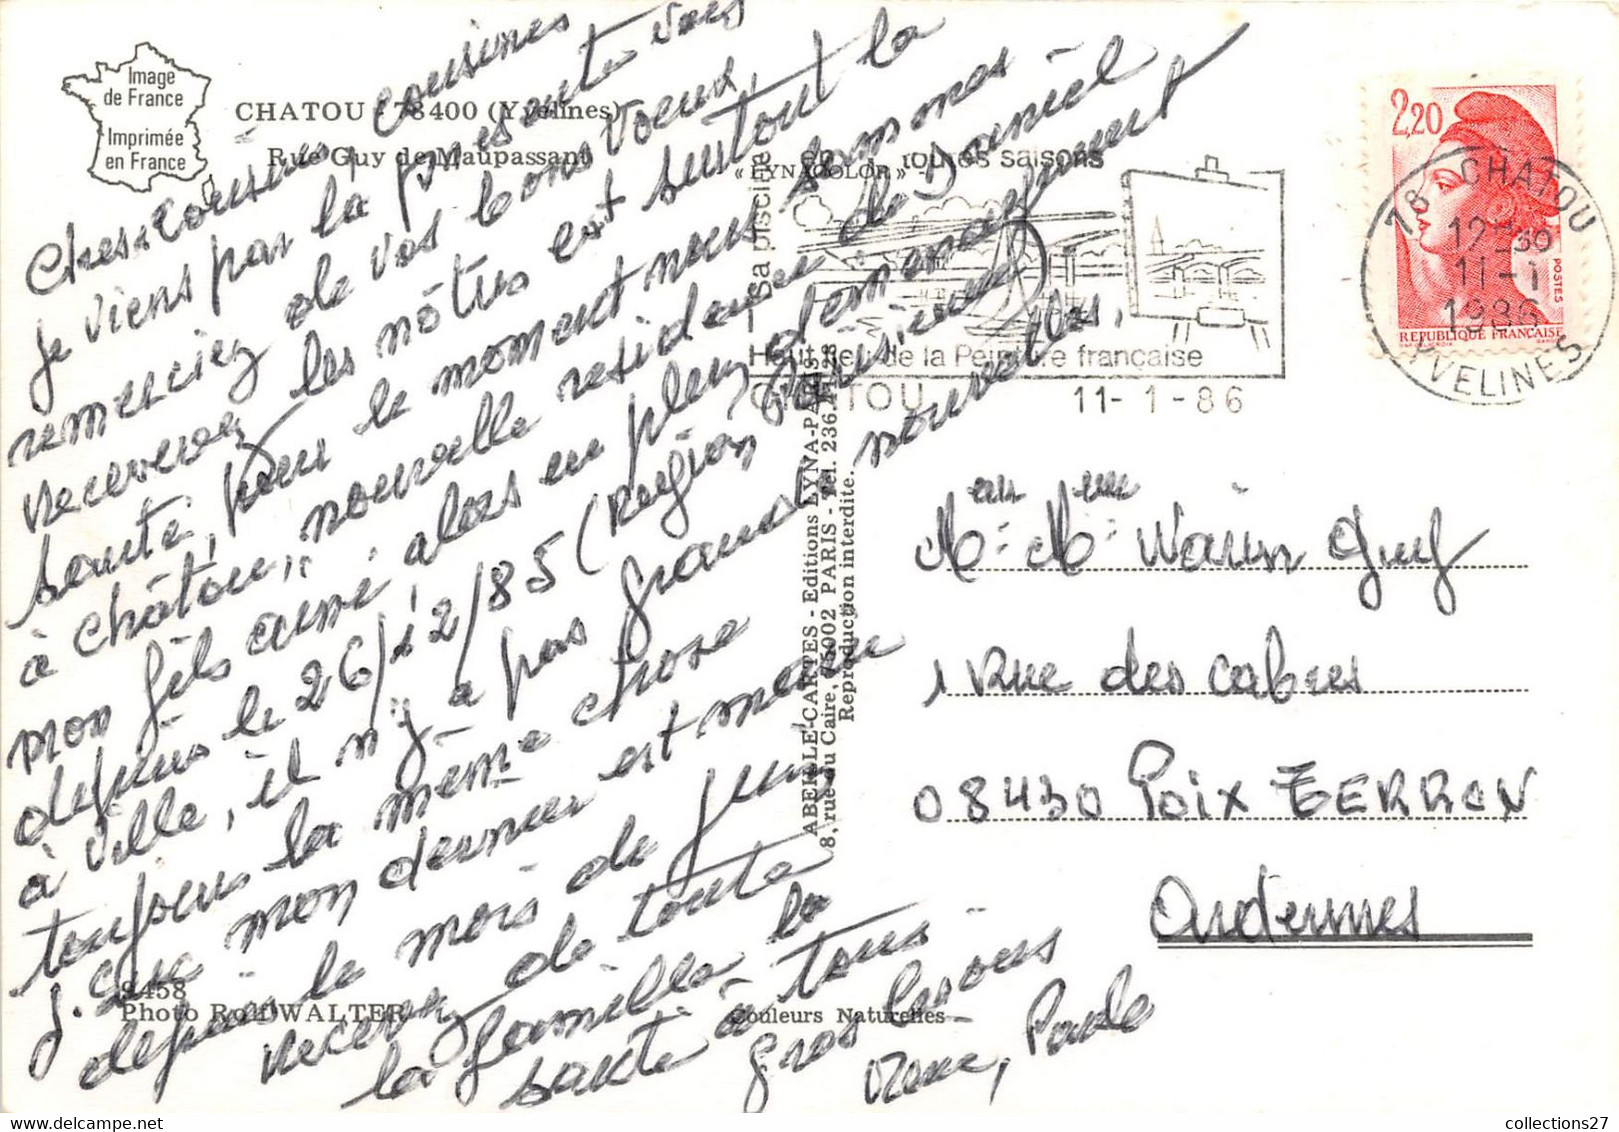 Image
de France
Imprimée
en France
CHATOU - 78400 (Yvelines)
Rue Guy de Maupassant
« LYNACOLOR »
Chers Cousins, cousines
je viens par la présente vous
remerciez de vos bons voeux,
recevez les nôtres est surtout la
santé, pour le moment nous sommes
à châtou, nouvelle residence de Daniel
mon fils aussi, alors en plein demenagement
depuis le 26/12/85 (Region Parisienne)
à ville, il n'y a pas grand nouvelles,
toujours la même chose
mon dernier est marin
depuis le mois de juin
recevez de toute
la famille la
santé à tous
gros bisous
Rene, Paule
8458
Photo Rolf WALTER
Couleurs Naturelles
ABEILLE-CARTES - Editions LYNA-PARIS
8, rue du Caire, 75002 PARIS - Tél. 236.41.28
Reproduction interdite.
Sa piscine
en toutes saisons
Haut lieu de la Peinture française
CHATOU 11-1-86
2,20
POSTES
REPUBLIQUE FRANÇAISE
78 CHATOU
12H30
11-1
1986
YVELINES
Mr Mme Warin Guy
1 Rue des cabres
08430 Poix TERRON
Ardennes
collections27